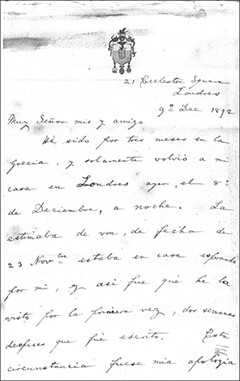 21 Eccleston Square
Londres
9º Dec 1892
Muy Señor mio y amigo
Hé sido por tres meses en la
grecia, y solamente volvió a mi
casa en Londres ayer, el 8º
de Deciembre, a noche. La
estimada de vm, de fecha de
23 Novre estaba en casa esperando
por mi, y asi fue que he la
visto por la primera vez, dos semanas
despues que fué escrito. Esta
circunstancia fuese mia apologia